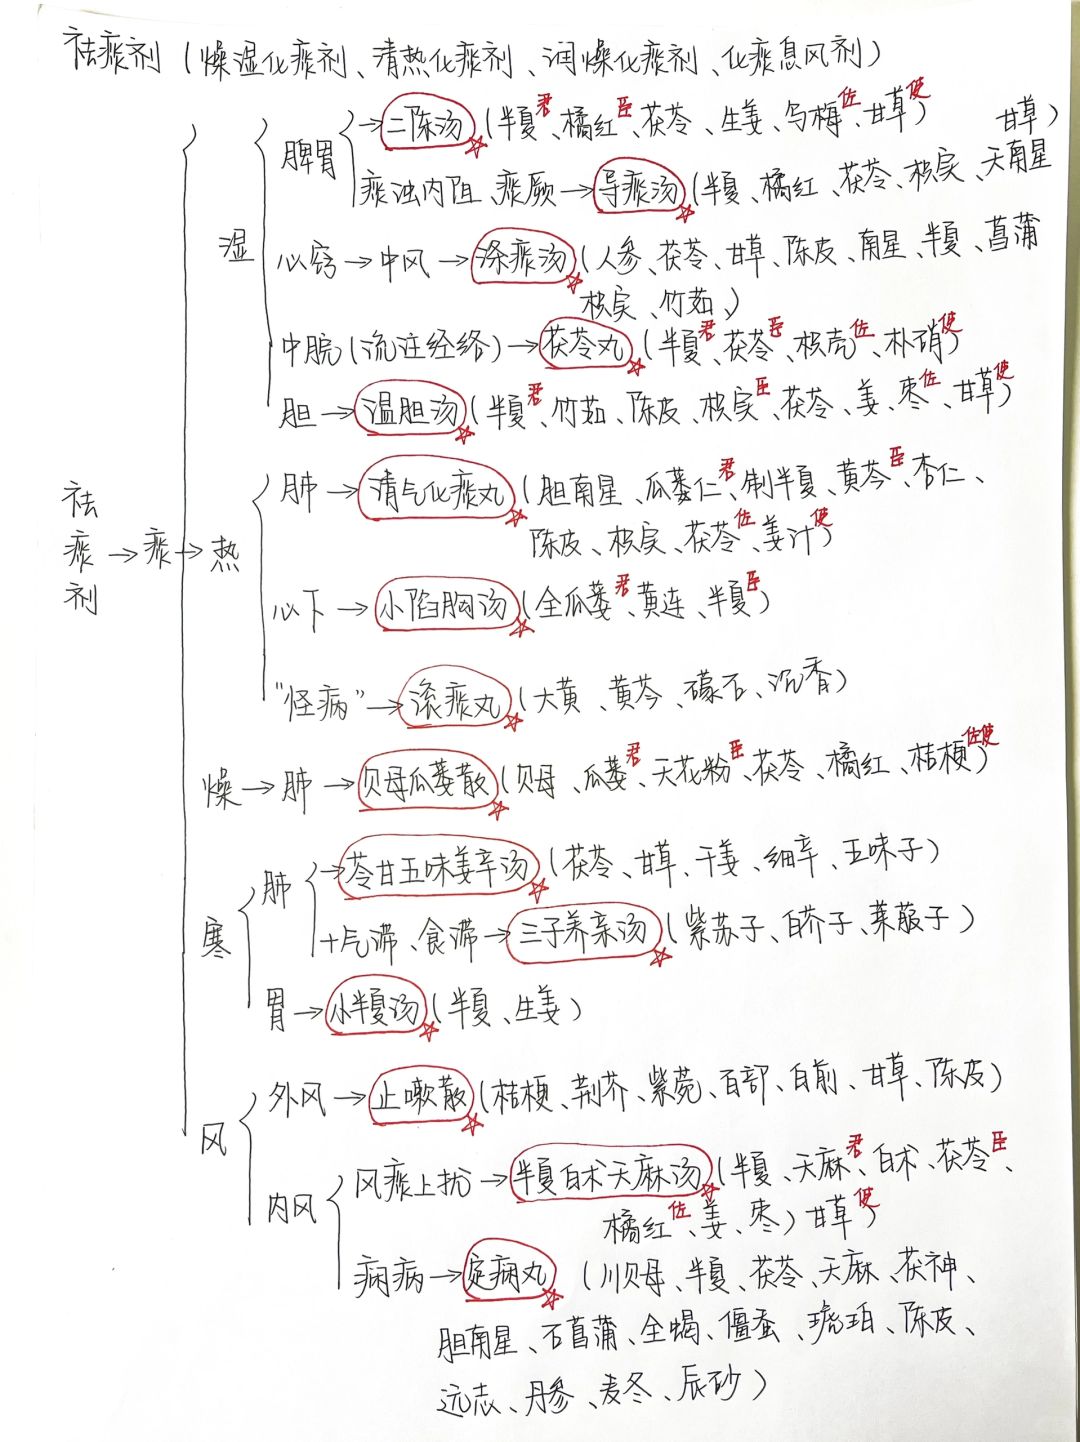 祛痰剂（燥湿化痰剂、清热化痰剂、润燥化痰剂、化痰息风剂）
脾胃 → 二陈汤（半夏君、橘红臣、茯苓、生姜、乌梅佐、甘草使）
痰浊内阻、痰厥 → 导痰汤（半夏、橘红、茯苓、枳实、天南星 甘草）
湿
心窍 → 中风 → 涤痰汤（人参、茯苓、甘草、陈皮、南星、半夏、菖蒲
枳实、竹茹、）
中脘（流注经络）→ 茯苓丸（半夏君、茯苓臣、枳壳佐、朴硝使）
胆 → 温胆汤（半夏君、竹茹、陈皮、枳实臣、茯苓、姜、枣佐、甘草使）
肺 → 清气化痰丸（胆南星、瓜蒌仁君、制半夏、黄芩臣、杏仁、
陈皮、枳实、茯苓佐、姜汁使）
祛痰剂 → 痰 → 热
心下 → 小陷胸汤（全瓜蒌君、黄连、半夏臣）
"怪病" → 滚痰丸（大黄、黄芩、礞石、沉香）
燥 → 肺 → 贝母瓜蒌散（贝母、瓜蒌君、天花粉臣、茯苓、橘红、桔梗佐使）
肺 → 苓甘五味姜辛汤（茯苓、甘草、干姜、细辛、五味子）
寒
+气滞、食滞 → 三子养亲汤（紫苏子、白芥子、莱菔子）
胃 → 小半夏汤（半夏、生姜）
外风 → 止嗽散（桔梗、荆芥、紫菀、百部、白前、甘草、陈皮）
风
内风
风痰上扰 → 半夏白术天麻汤（半夏、天麻君、白术、茯苓臣、
橘红佐、姜、枣）甘草使）
痫病 → 定痫丸（川贝母、半夏、茯苓、天麻、茯神、
胆南星、石菖蒲、全蝎、僵蚕、琥珀、陈皮、
远志、丹参、麦冬、辰砂）